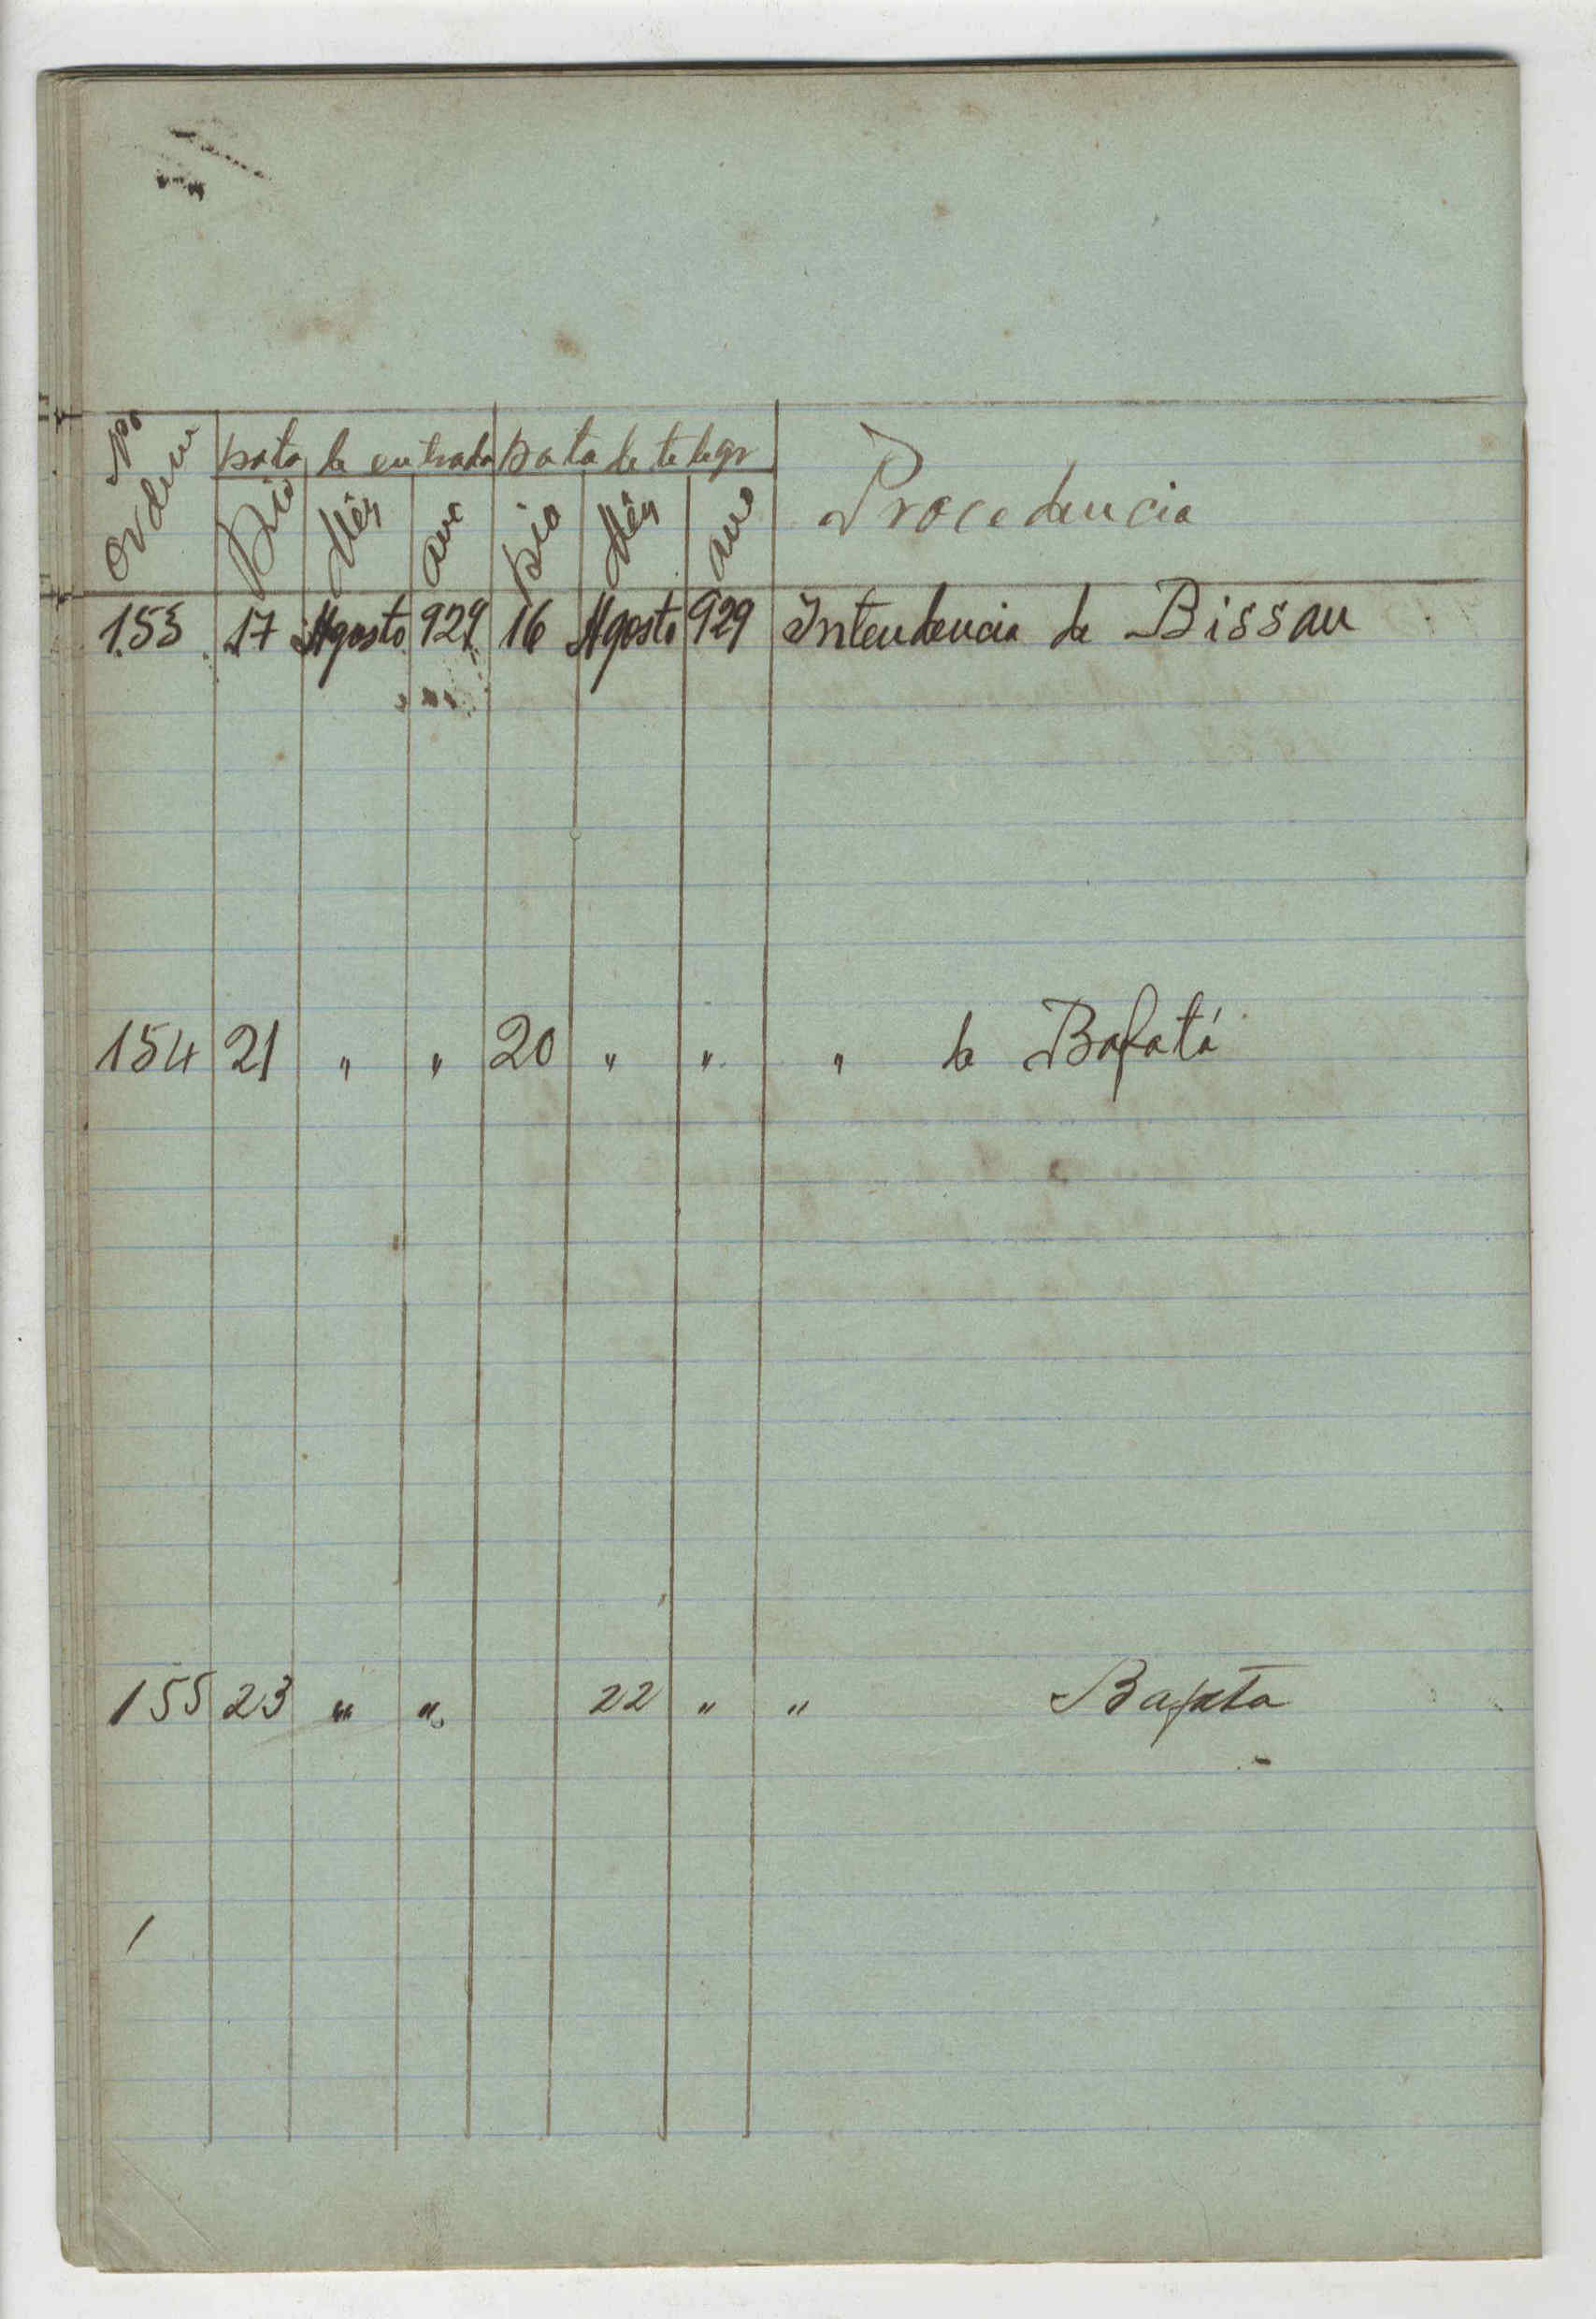 Nº Ordem Data de entrada Data de telegr Procedencia
Dia Mês ano Dia Mês ano
153 17 Agosto 929 16 Agosto 929 Intendencia de Bissau
154 21 " " 20 " " " de Bafatá
155 23 " " 22 " " Bafata